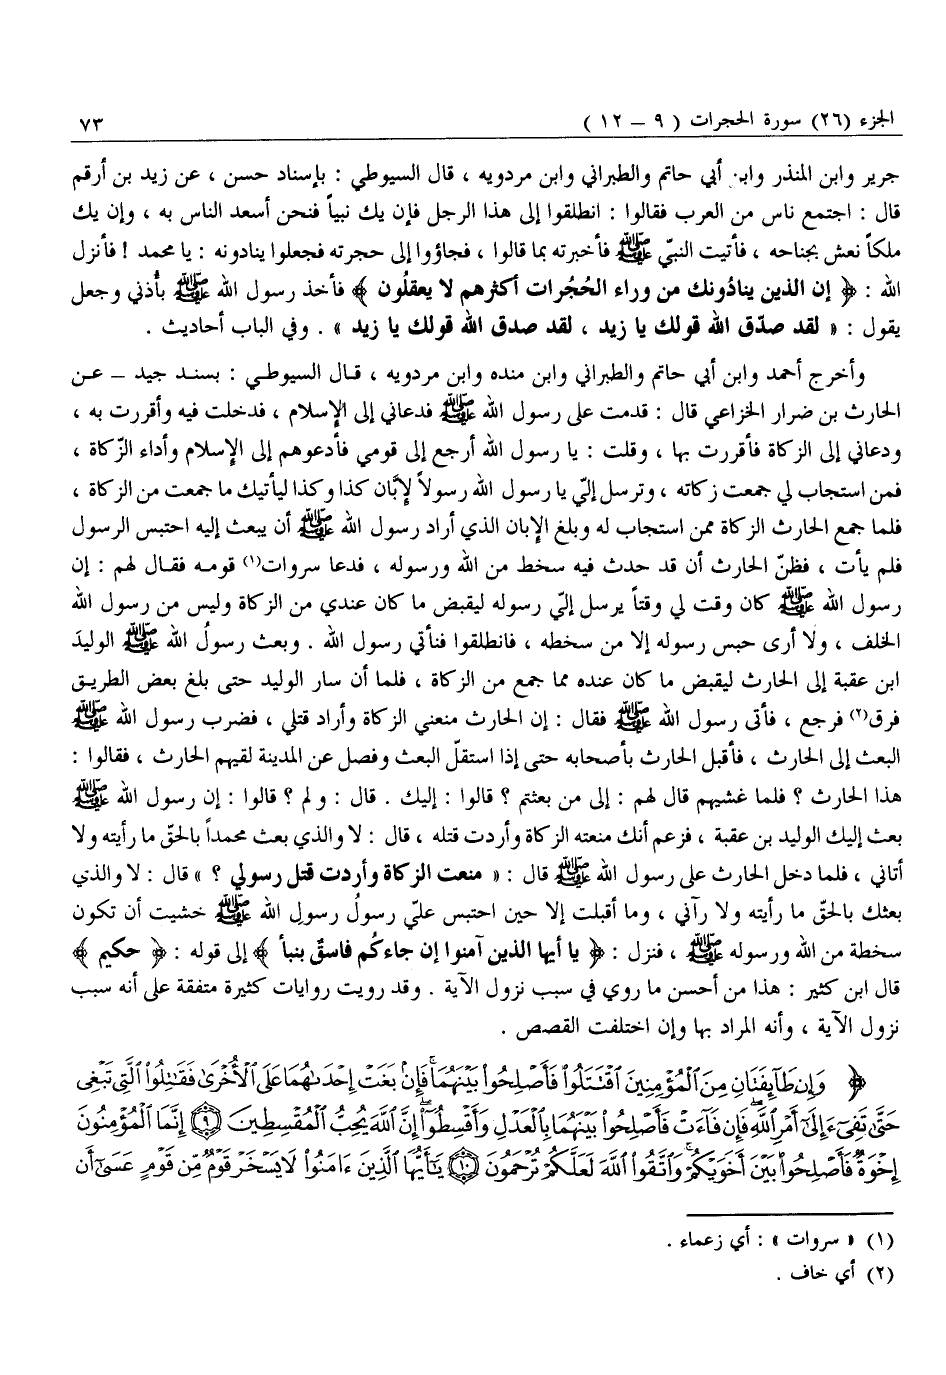 الجزء (٢٦) سورة الحجرات ( ٩ – ١٢ ) ٧٣
جرير وابن المنذر وابن أبي حاتم والطبراني وابن مردويه ، قال السيوطي : بإسناد حسن ، عن زيد بن أرقم
قال : اجتمع ناس من العرب فقالوا : انطلقوا إلى هذا الرجل فإن يك نبياً فنحن أسعد الناس به ، وإن يك
ملكاً نعش بجناحه ، فأتيت النبيّ ﷺ فأخبرته بما قالوا ، فجاؤوا إلى حجرته فجعلوا ينادونه : يا محمد ! فأنزل
الله : ﴿ إن الذين ينادُونك من وراء الحُجُرات أكثرهم لا يعقلُون ﴾ فأخذ رسول الله ﷺ بأُذني وجعل
يقول : « لقد صدّق الله قولك يا زيد ، لقد صدق الله قولك يا زيد » . وفي الباب أحاديث .
وأخرج أحمد وابن أبي حاتم والطبراني وابن منده وابن مردويه ، قال السيوطي : بسند جيد – عن
الحارث بن ضرار الخزاعي قال : قدمت على رسول الله ﷺ فدعاني إلى الإسلام ، فدخلت فيه وأقررت به ،
ودعاني إلى الزكاة فأقررت بها ، وقلت : يا رسول الله أرجع إلى قومي فأدعوهم إلى الإسلام وأداء الزّكاة ،
فمن استجاب لي جمعت زكاته ، وترسل إليّ يا رسول الله رسولاً لإبَّان كذا وكذا ليأتيك ما جمعت من الزكاة ،
فلما جمع الحارث الزكاة ممن استجاب له وبلغ الإبان الذي أراد رسول الله ﷺ أن يبعث إليه احتبس الرسول
فلم يأت ، فظنّ الحارث أن قد حدث فيه سخط من الله ورسوله ، فدعا سروات(١) قومه فقال لهم : إن
رسول الله ﷺ كان وقت لي وقتاً يرسل إليّ رسوله ليقبض ما كان عندي من الزكاة وليس من رسول الله
الخلف ، ولا أرى حبس رسوله إلا من سخطه ، فانطلقوا فنأتي رسول الله . وبعث رسولُ الله ﷺ الوليدَ
ابن عقبة إلى الحارث ليقبض ما كان عنده مما جمع من الزكاة ، فلما أن سار الوليد حتى بلغ بعض الطريق
فرق(٢) فرجع ، فأتى رسول الله ﷺ فقال : إن الحارث منعني الزكاة وأراد قتلي ، فضرب رسول الله ﷺ
البعث إلى الحارث ، فأقبل الحارث بأصحابه حتى إذا استقلّ البعث وفصل عن المدينة لقيهم الحارث ، فقالوا :
هذا الحارث ؟ فلما غشيهم قال لهم : إلى من بعثتم ؟ قالوا : إليك . قال : ولم ؟ قالوا : إن رسول الله ﷺ
بعث إليك الوليد بن عقبة ، فزعم أنك منعته الزكاة وأردت قتله ، قال : لا والذي بعث محمداً بالحقّ ما رأيته ولا
أتاني ، فلما دخل الحارث على رسول الله ﷺ قال : « منعت الزكاة وأردت قتل رسولي ؟ » قال : لا والذي
بعثك بالحقّ ما رأيته ولا رآني ، وما أقبلت إلا حين احتبس عليّ رسولُ رسولِ الله ﷺ خشيت أن تكون
سخطة من الله ورسوله ﷺ ، فنزل : ﴿ يا أيها الذين آمنوا إن جاءكُم فاسقٌ بنبأ ﴾ إلى قوله : ﴿ حكيم ﴾
قال ابن كثير : هذا من أحسن ما روي في سبب نزول الآية . وقد رويت روايات كثيرة متفقة على أنه سبب
نزول الآية ، وأنه المراد بها وإن اختلفت القصص .
﴿ وَإِن طَآئِفَتَانِ مِنَ ٱلْمُؤْمِنِينَ ٱقْتَتَلُوا۟ فَأَصْلِحُوا۟ بَيْنَهُمَا ۖ فَإِنۢ بَغَتْ إِحْدَىٰهُمَا عَلَى ٱلْأُخْرَىٰ فَقَـٰتِلُوا۟ ٱلَّتِى تَبْغِى
حَتَّىٰ تَفِىٓءَ إِلَىٰٓ أَمْرِ ٱللَّهِ ۚ فَإِن فَآءَتْ فَأَصْلِحُوا۟ بَيْنَهُمَا بِٱلْعَدْلِ وَأَقْسِطُوٓا۟ ۖ إِنَّ ٱللَّهَ يُحِبُّ ٱلْمُقْسِطِينَ ۝٩ إِنَّمَا ٱلْمُؤْمِنُونَ
إِخْوَةٌ فَأَصْلِحُوا۟ بَيْنَ أَخَوَيْكُمْ ۚ وَٱتَّقُوا۟ ٱللَّهَ لَعَلَّكُمْ تُرْحَمُونَ ۝١٠ يَـٰٓأَيُّهَا ٱلَّذِينَ ءَامَنُوا۟ لَا يَسْخَرْ قَوْمٌ مِّن قَوْمٍ عَسَىٰٓ أَن
(١) « سروات » : أي زعماء .
(٢) أي خاف .